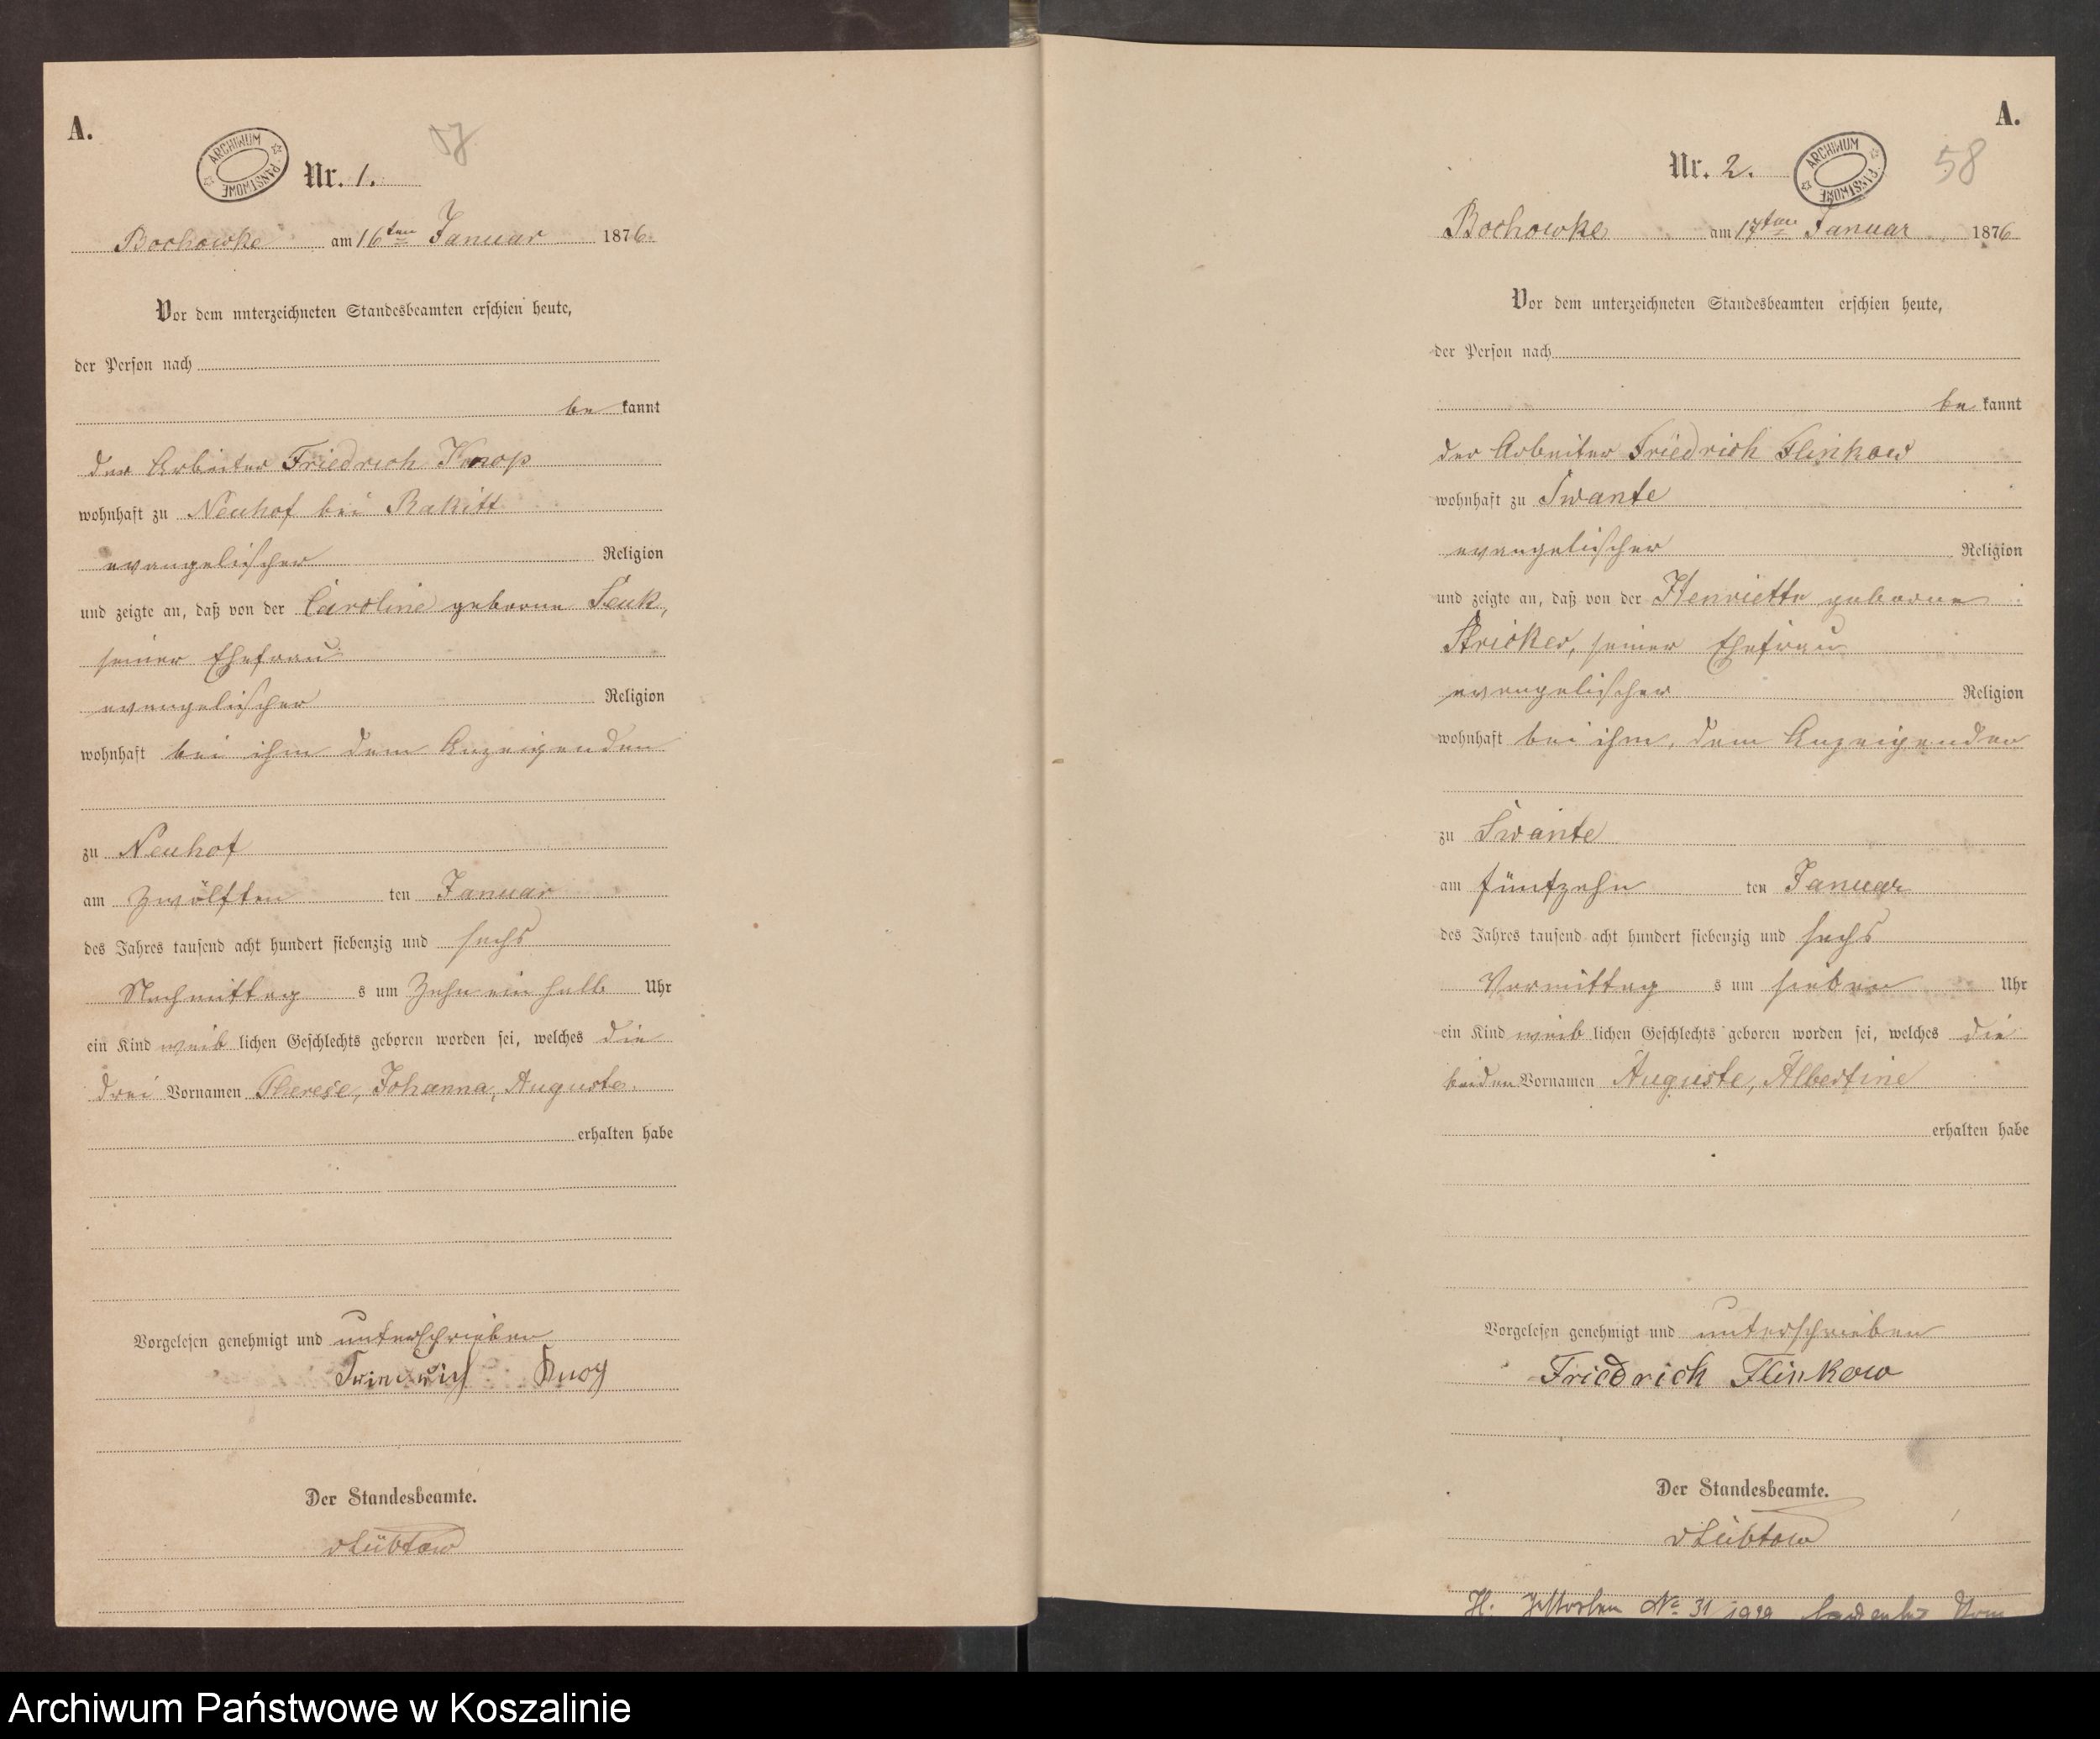 A.
ARCHIWUM PAŃSTWOWE
Nr. 1.
Bochowke am 16ten Januar 1876.
Vor dem unterzeichneten Standesbeamten erschien heute,
der Person nach
be kannt
der Arbeiter Friedrich Knop
wohnhaft zu Neuhof bei Rakitt
evangelischer Religion
und zeigte an, daß von der Caroline geborne Senk,
seiner Ehefrau
evangelischer Religion
wohnhaft bei ihm dem Anzeigenden
zu Neuhof
am zwölften ten Januar
des Jahres tausend acht hundert siebenzig und sechs
Nachmittag s um zehn ein halb Uhr
ein Kind weib lichen Geschlechts geboren worden sei, welches die
drei Vornamen Therese, Johanna, Auguste
erhalten habe
Vorgelesen genehmigt und unterschrieben
Friedrich Knop
Der Standesbeamte.
vLübtow
A.
Nr. 2.
ARCHIWUM PAŃSTWOWE
58
Bochowke am 17ten Januar 1876
Vor dem unterzeichneten Standesbeamten erschien heute,
der Person nach
be kannt
der Arbeiter Friedrich Flinkow
wohnhaft zu Swante
evangelischer Religion
und zeigte an, daß von der Henriette geborne
Stricker, seiner Ehefrau
evangelischer Religion
wohnhaft bei ihm, dem Anzeigenden
zu Swante
am fünfzehn ten Januar
des Jahres tausend acht hundert siebenzig und sechs
Vormittag s um sieben Uhr
ein Kind weib lichen Geschlechts geboren worden sei, welches die
beiden Vornamen Auguste, Albertine
erhalten habe
Vorgelesen genehmigt und unterschrieben
Friedrich Flinkow
Der Standesbeamte.
vLübtow
H. Gestorben No 31
Archiwum Państwowe w Koszalinie